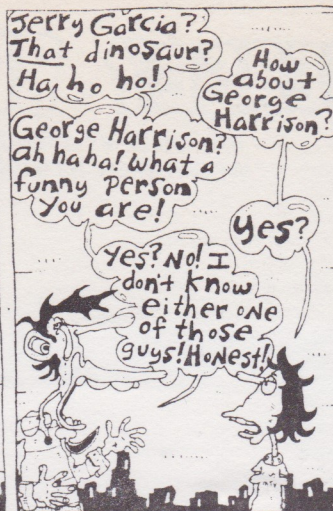 Jerry Garcia?
That dinosaur?
Ha ho ho!
How
about
George
Harrison?
George Harrison?
ah haha! What a
funny Person
You are!
Yes?
Yes? No! I
don't know
either one
of those
guys! Honest!